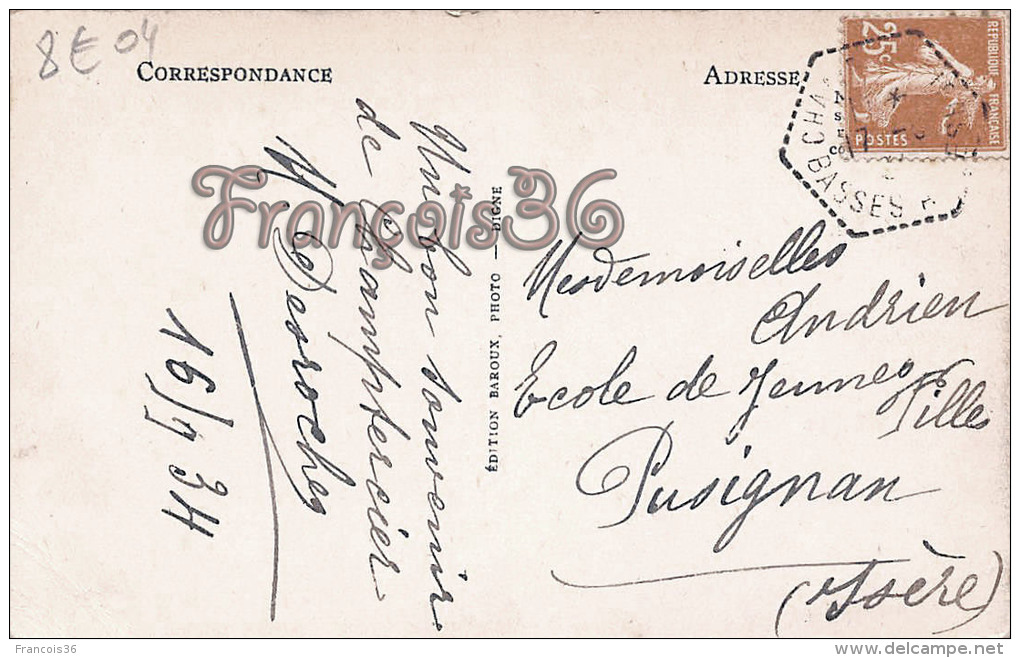 8€ 04
CORRESPONDANCE
ADRESSE
RÉPUBLIQUE FRANÇAISE
25c
POSTES
CHA
BASSES
Un bon souvenir
de Champtercier
M. Desroches
16/9 34
ÉDITION BAROUX, PHOTO — DIGNE
Mesdemoiselles
Andrien
Ecole de Jeunes
Filles
Pusignan
(Isère)
François36
François36
www.delcampe.net